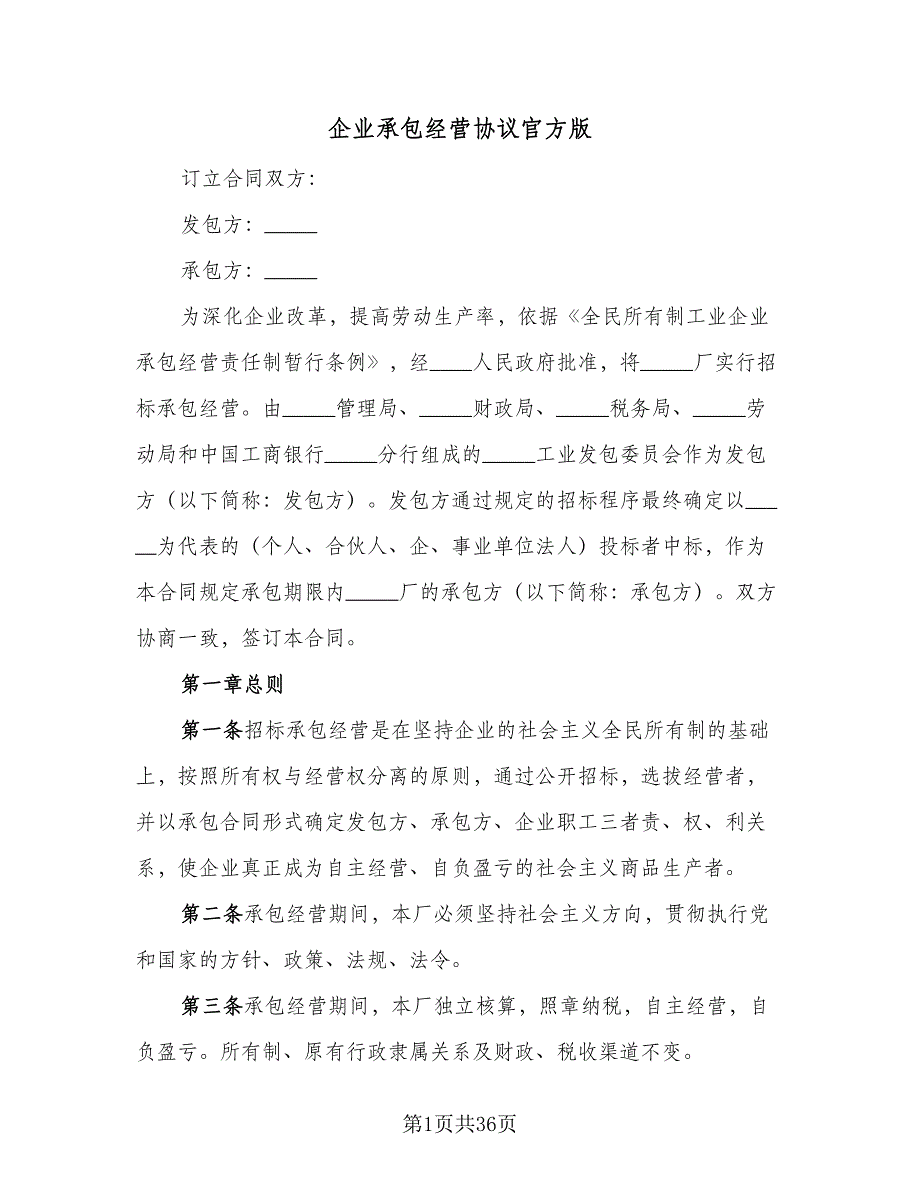 企业承包经营协议官方版
订立合同双方：
发包方：_____
承包方：_____
为深化企业改革，提高劳动生产率，依据《全民所有制工业企业
承包经营责任制暂行条例》，经____人民政府批准，将_____厂实行招
标承包经营。由_____管理局、_____财政局、_____税务局、_____劳
动局和中国工商银行_____分行组成的_____工业发包委员会作为发包
方（以下简称：发包方）。发包方通过规定的招标程序最终确定以___
__为代表的（个人、合伙人、企、事业单位法人）投标者中标，作为
本合同规定承包期限内_____厂的承包方（以下简称：承包方）。双方
协商一致，签订本合同。
第一章总则
第一条招标承包经营是在坚持企业的社会主义全民所有制的基础
上，按照所有权与经营权分离的原则，通过公开招标，选拔经营者，
并以承包合同形式确定发包方、承包方、企业职工三者责、权、利关
系，使企业真正成为自主经营、自负盈亏的社会主义商品生产者。
第二条承包经营期间，本厂必须坚持社会主义方向，贯彻执行党
和国家的方针、政策、法规、法令。
第三条承包经营期间，本厂独立核算，照章纳税，自主经营，自
负盈亏。所有制、原有行政隶属关系及财政、税收渠道不变。
第1页共36页